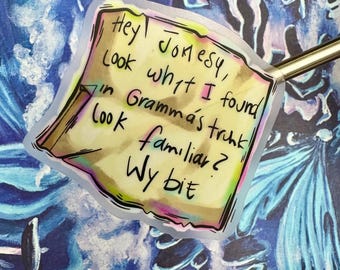 Hey Jonesy,
Look what I found
in Gramma's trunk
look familiar?
Wybie